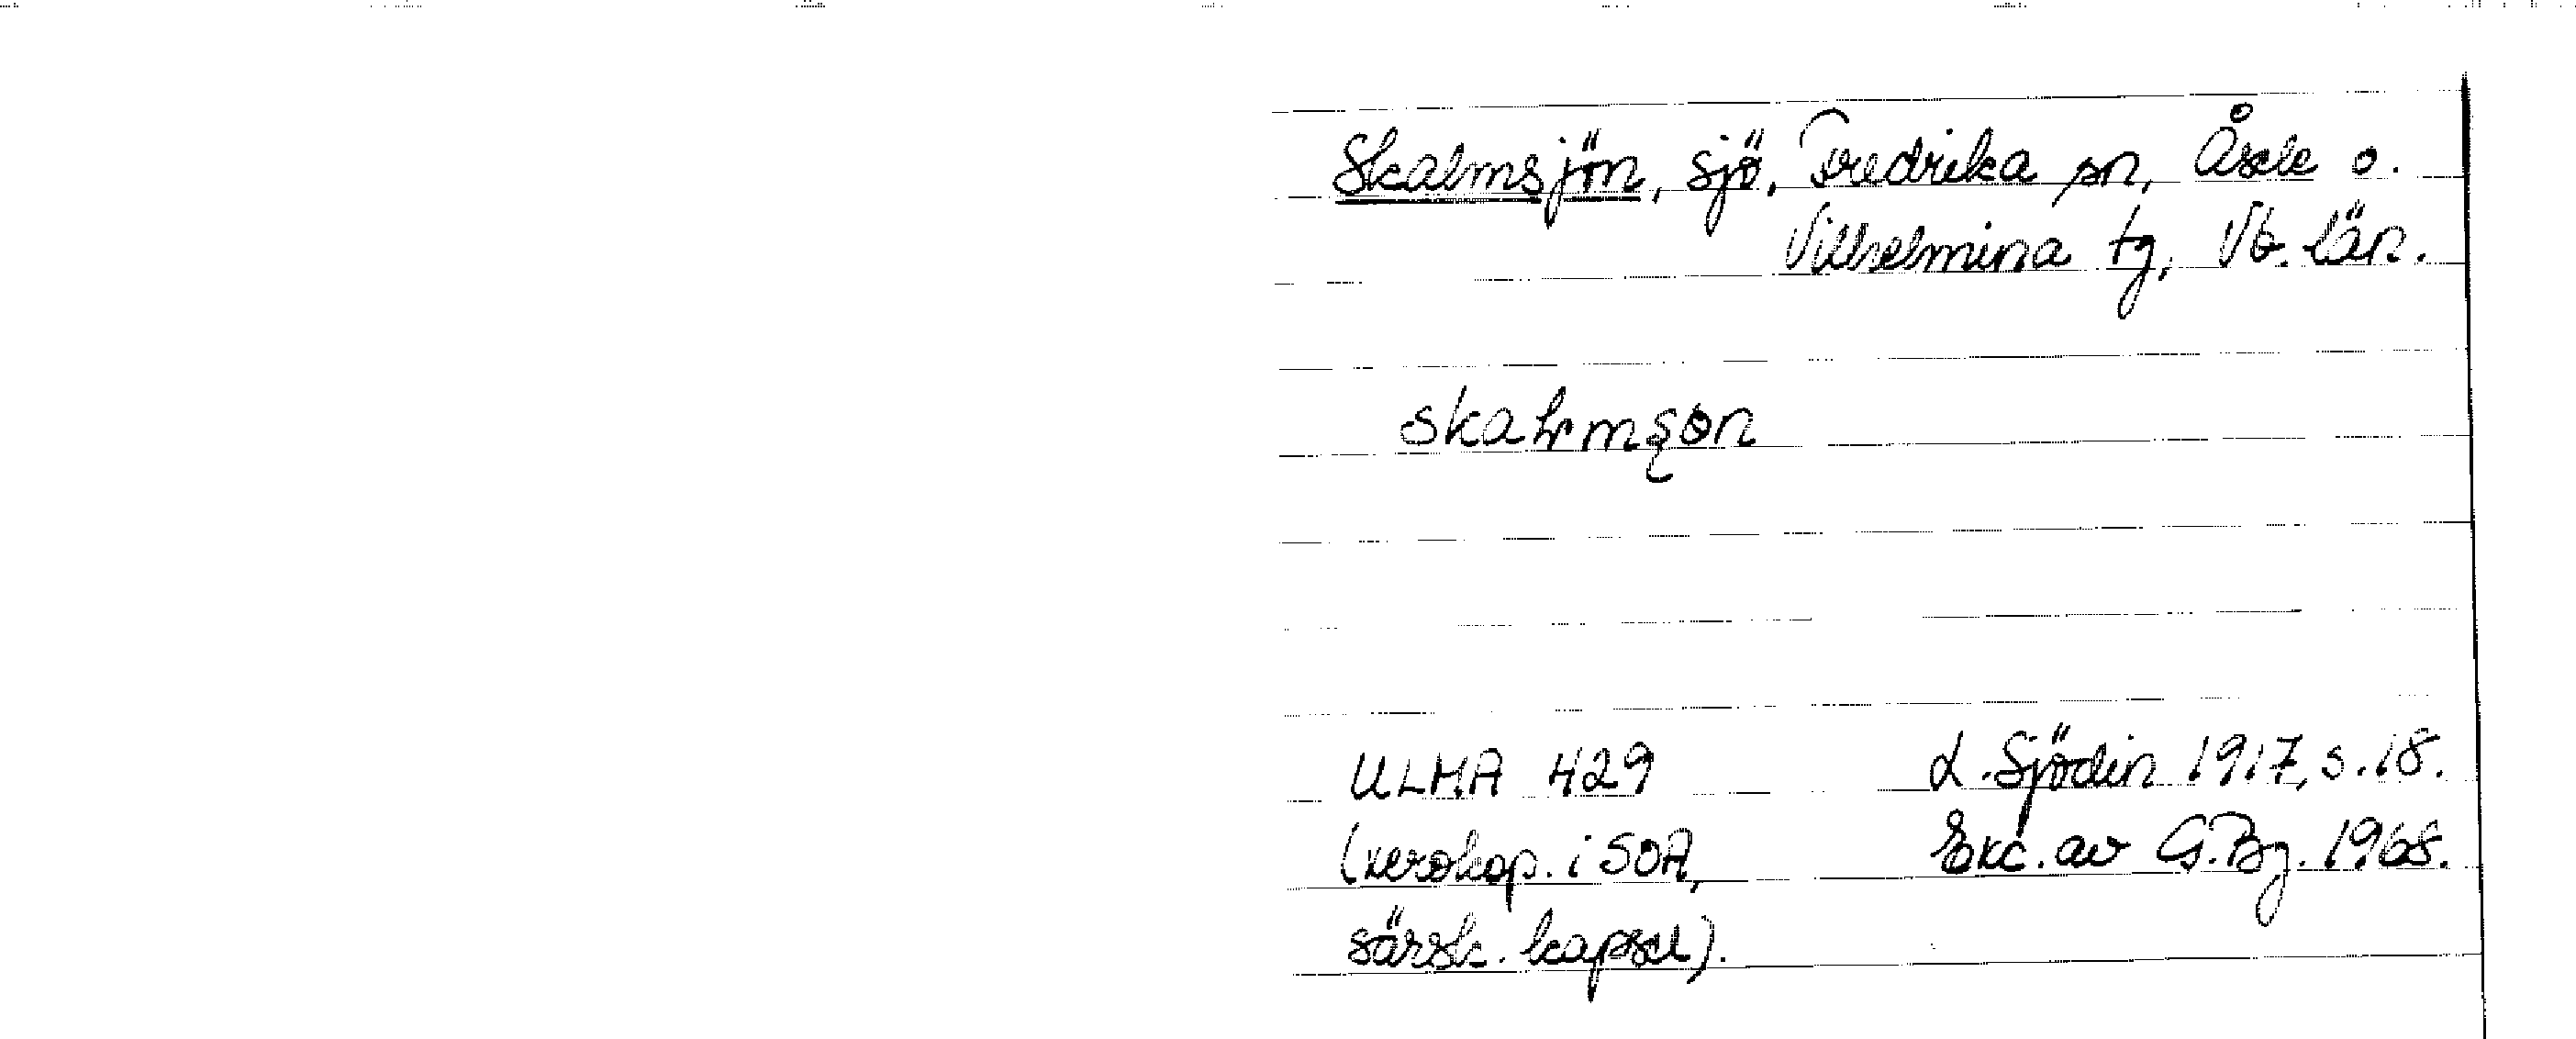 Skalmsjön, sjö, Fredrika sn, Åsele o.
Vilhelmina tg, Vb. län.
ULMA 429 L. Sjödin 1917, s. 18.
(xerokop. i SOA, Exc. av G. Bg. 1968.
särsk. kapsel).